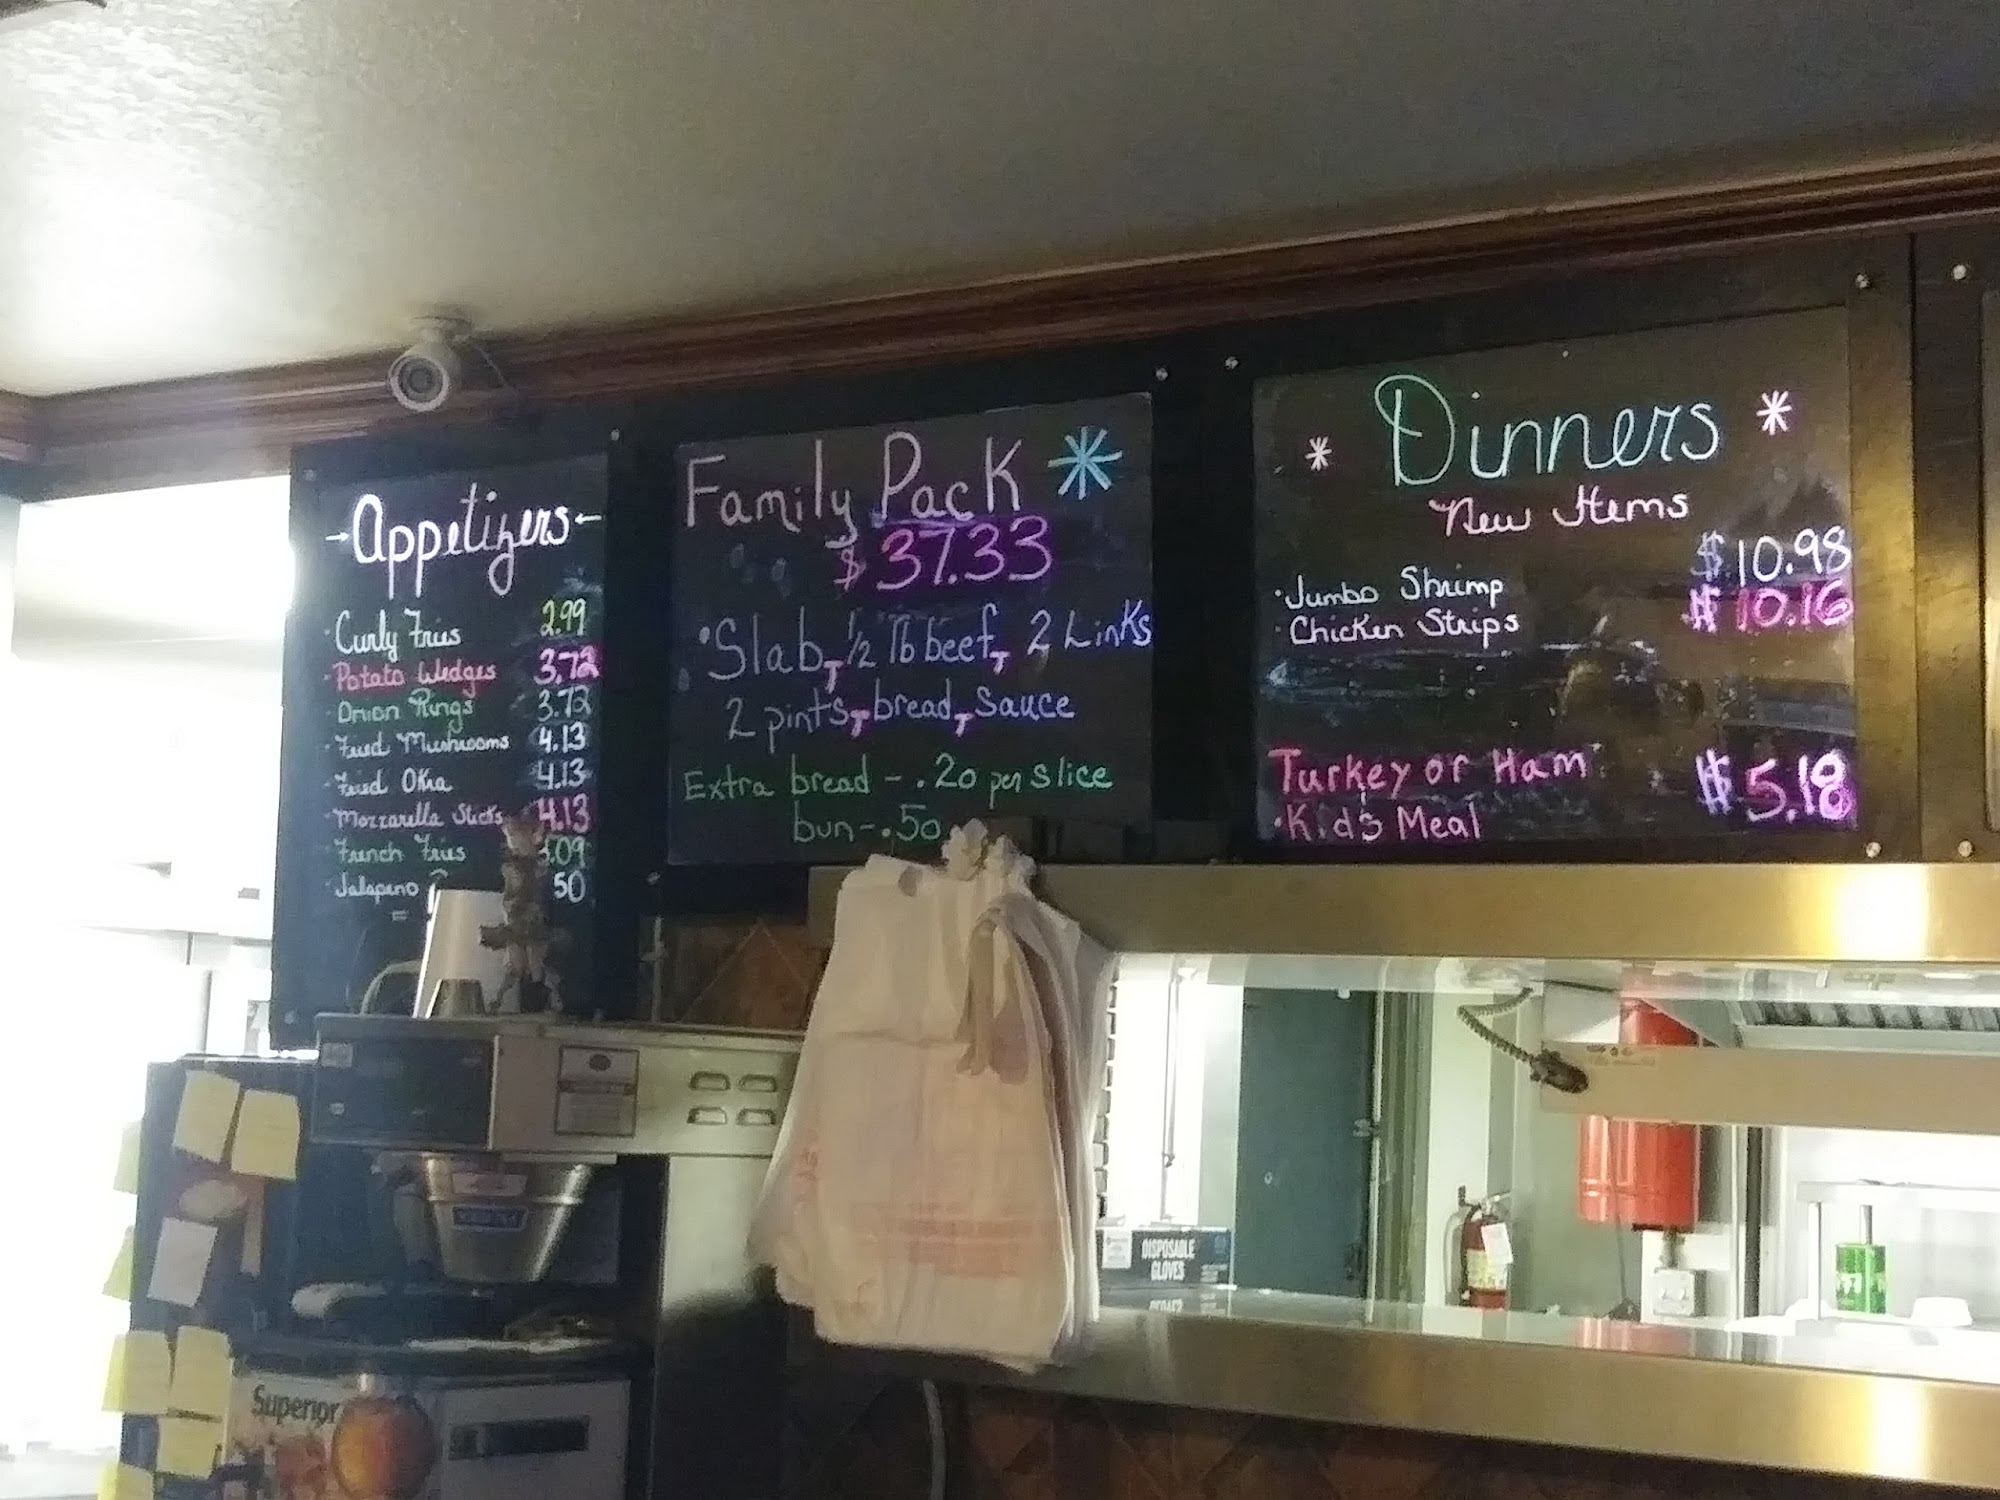 Appetizers
· Curly Fries 2.99
· Potato Wedges 3.72
· Onion Rings 3.72
· Fried Mushrooms 4.13
· Fried Okra 4.13
· Mozzarella Sticks 4.13
· French Fries 3.09
· Jalapeno 50
Family Pack
$37.33
· Slab, 1/2 lb beef, 2 Links
2 pints, bread, sauce
Extra bread - .20 per slice
bun - .50
Dinners
New Items
· Jumbo Shrimp $10.98
· Chicken Strips $10.16
Turkey or Ham
· Kid's Meal $5.18
DISPOSABLE
GLOVES
Superior